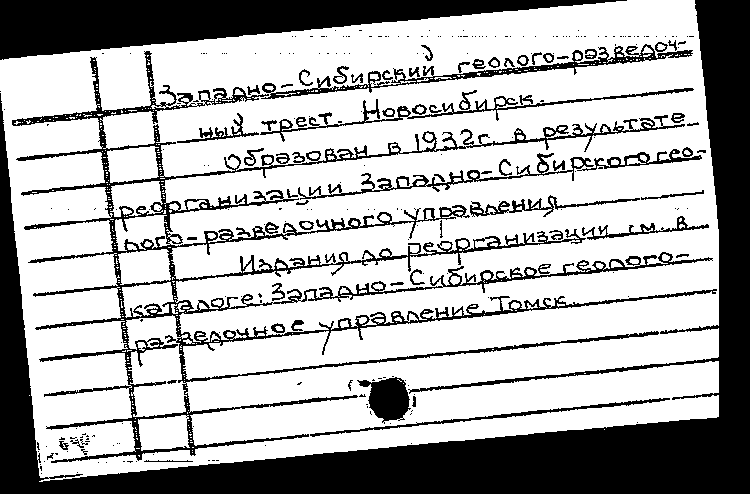 Западно-Сибирский геолого-разведоч-
ный трест. Новосибирск.
Образован в 1932г. в результате
реорганизации Западно-Сибирского гео-
лого-разведочного управления
Издания до реорганизации см. в
каталоге: Западно-Сибирское геолого-
разведочное управление. Томск.